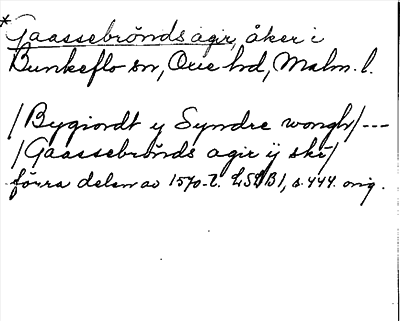 *Gaassebrönds agir, åker i
Bunkeflo sn, Oxie hd, Malm. l.
/Bygiordt y Syndre wongh/---
/Gaassebrönds agir ÿ ski/
förra delen av 1570-t. LSDB1, s. 444. orig.